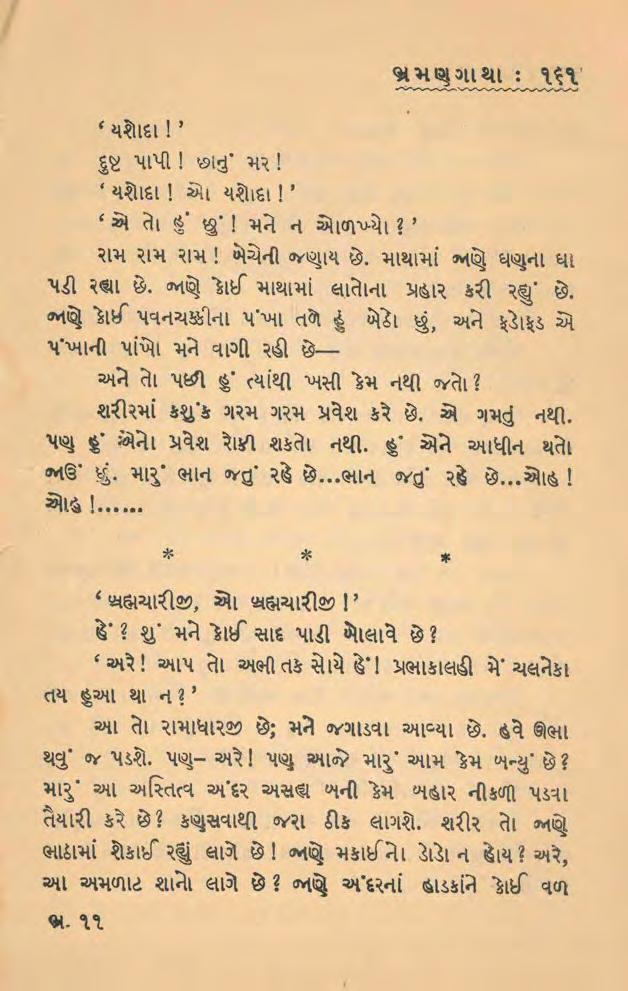 ભ્રમણગાથા : ૧૬૧
‘ યશોદા ! ’
દુષ્ટ પાપી ! છાનું મર !
‘ યશોદા ! ઓ યશોદા ! ’
‘ એ તો હું છું ! મને ન ઓળખ્યો ? ’
રામ રામ રામ ! બેચેની જણાય છે. માથામાં જાણે ઘણના ઘા
પડી રહ્યા છે. જાણે કોઈ માથામાં લાતોના પ્રહાર કરી રહ્યું છે.
જાણે કોઈ પવનચક્કીના પંખા તળે હું બેઠો છું, અને ફડોફડ એ
પંખાની પાંખો મને વાગી રહી છે—
અને તો પછી હું ત્યાંથી ખસી કેમ નથી જતો ?
શરીરમાં કશુંક ગરમ ગરમ પ્રવેશ કરે છે. એ ગમતું નથી.
પણ હું એનો પ્રવેશ રોકી શકતો નથી. હું એને આધીન થતો
જાઉં છું. મારું ભાન જતું રહે છે...ભાન જતું રહે છે...ઓહ !
ઓહ !......
* * *
‘ બ્રહ્મચારીજી, ઓ બ્રહ્મચારીજી ! ’
હેં ? શું મને કોઈ સાદ પાડી બોલાવે છે ?
‘ અરે ! આપ તો અભી તક સોયે હેં ! પ્રભાકાલહી મેં ચલનેકા
તય હુઆ થા ન ? ’
આ તો રામાધારજી છે; મને જગાડવા આવ્યા છે. હવે ઊભા
થવું જ પડશે. પણ– અરે ! પણ આજે મારું આમ કેમ બન્યું છે ?
મારું આ અસ્તિત્વ અંદર અસહ્ય બની કેમ બહાર નીકળી પડવા
તૈયારી કરે છે ? કણસવાથી જરા ઠીક લાગશે. શરીર તો જાણે
ભાઠામાં શેકાઈ રહ્યું લાગે છે ! જાણે મકાઈનો ડોડો ન હોય ? અરે,
આ અમળાટ શાનો લાગે છે ? જાણે અંદરનાં હાડકાંને કોઈ વળ
ભ્ર. ૧૧